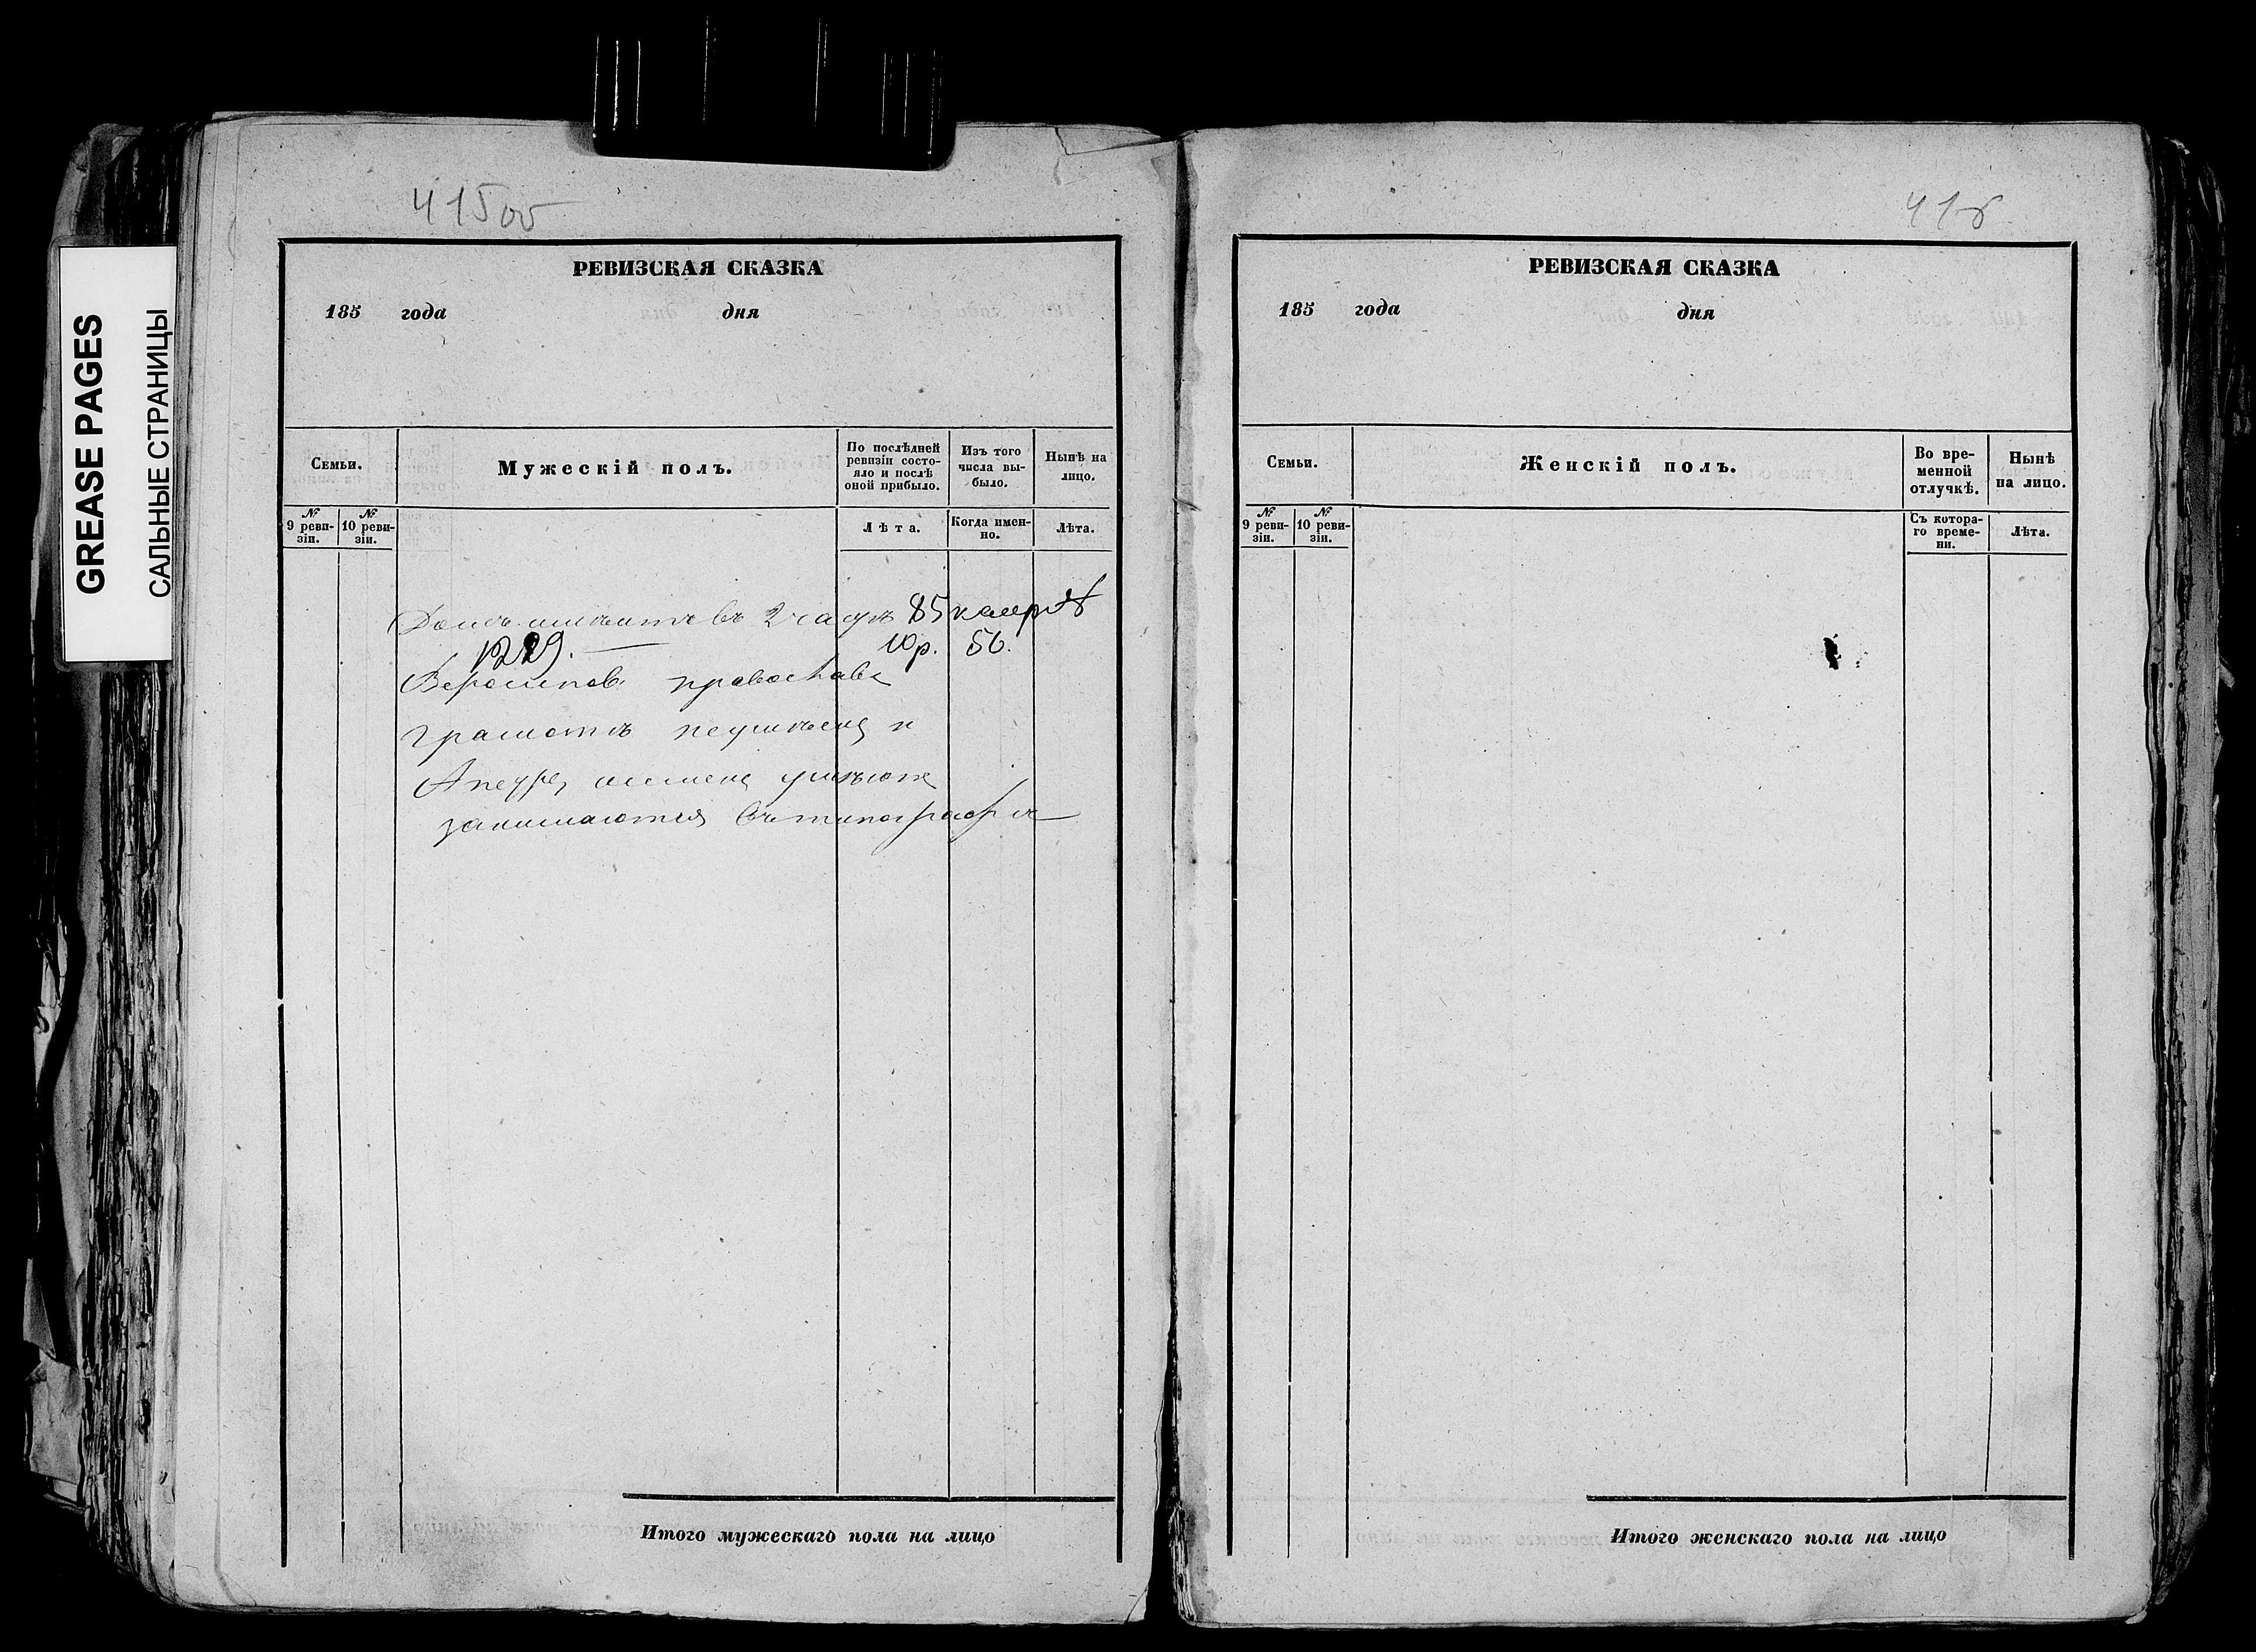 GREASE PAGES
САЛЬНЫЕ СТРАНИЦЫ
415об
РЕВИЗСКАЯ СКАЗКА
185 года дня
Семьи.
Мужескій полъ.
По послѣдней ревизіи состо-
яло и послѣ оной прибыло.
Изъ того числа вы-
было.
Нынѣ на лицо.
№ 9 реви-
зіи.
№ 10 реви-
зіи.
Лѣта.
Когда имен-
но.
Лѣта.
Домъ имѣитъ въ 2 части 85 кварт
1229. — 10 р. 56.
православ
грамотѣ неумѣещ и
Андре, семенъ умѣютъ
занимаются въ типографіи
Итого мужескаго пола на лицо
416
РЕВИЗСКАЯ СКАЗКА
185 года дня
Семьи.
Женскій полъ.
Во вре-
менной
отлучкѣ.
Нынѣ
на лицо.
№ 9 реви-
зіи.
№ 10 реви-
зіи.
Съ котора-
го време-
ни.
Лѣта.
Итого женскаго пола на лицо